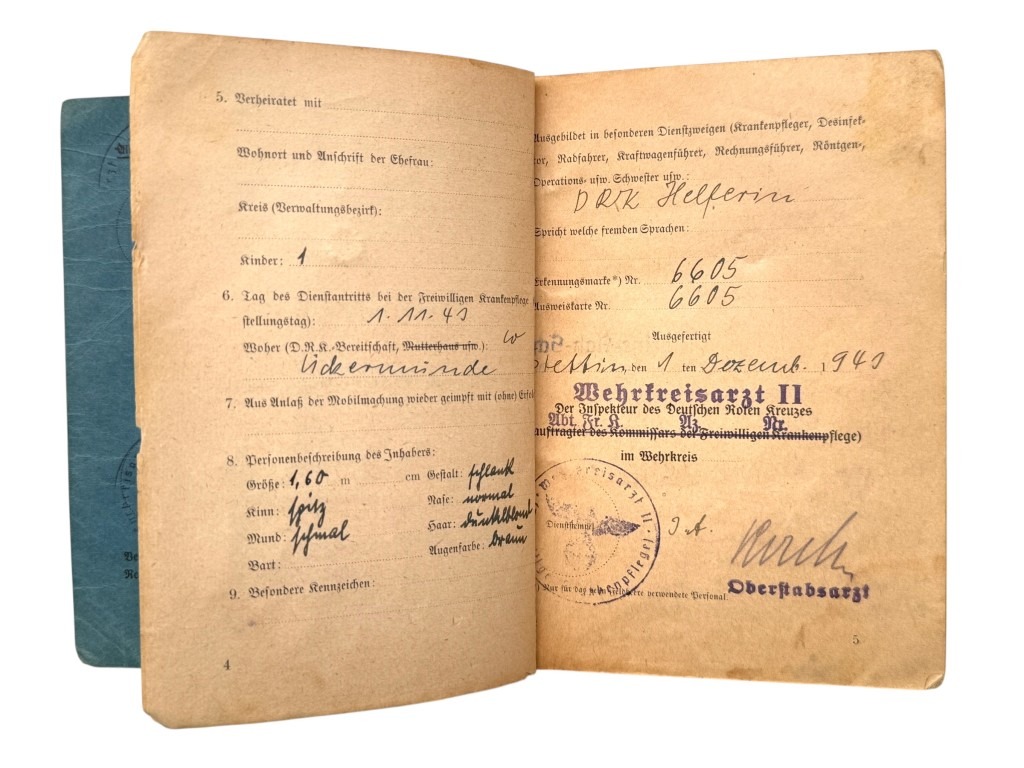 5. Verheiratet mit
Wohnort und Anschrift der Ehefrau:
Kreis (Verwaltungsbezirk):
Kinder: 1
6. Tag des Dienstantritts bei der Freiwilligen Krankenpflege
stellungstag): 1. 11. 43
Woher (D.R.K.-Bereitschaft, Mutterhaus usw.): w
Ückermünde
7. Aus Anlaß der Mobilmachung wieder geimpft mit (ohne) Erfol
8. Personenbeschreibung des Inhabers:
Größe: 1,60 m cm Gestalt: schlank
Kinn: spitz Nase: normal
Mund: schmal Haar: dunkelblond
Bart: Augenfarbe: braun
9. Besondere Kennzeichen:
4
Ausgebildet in besonderen Dienstzweigen (Krankenpfleger, Desinfek-
tor, Radfahrer, Kraftwagenführer, Rechnungsführer, Röntgen-,
Operations- usw. Schwester usw.:
DRK Helferin
Spricht welche fremden Sprachen:
Erkennungsmarke*) Nr. 6605
Ausweiskarte Nr. 6605
Ausgefertigt
Stettin, den 1 ten Dezemb. 1943
Wehrkreisarzt II
Der Inspekteur des Deutschen Roten Kreuzes
Abt. Fr. K. Az. Nr.
auftragter des Kommissars der Freiwilligen Krankenpflege)
im Wehrkreis
Wehrkreisarzt II
Dienststempel
I.A.
Oberstabsarzt
*) Nur für das verwendete Personal.
5